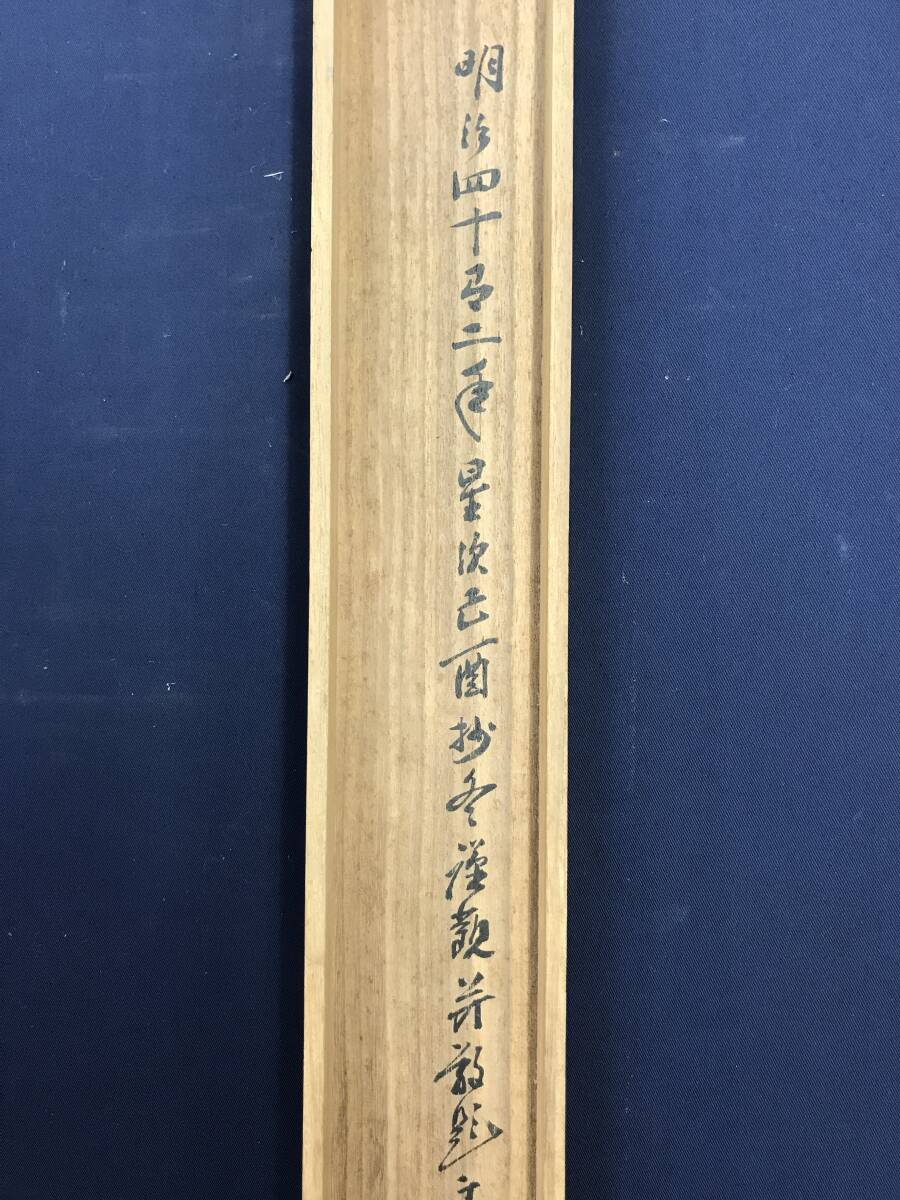 明治四十有二年星次己酉抄冬謹観并敬題